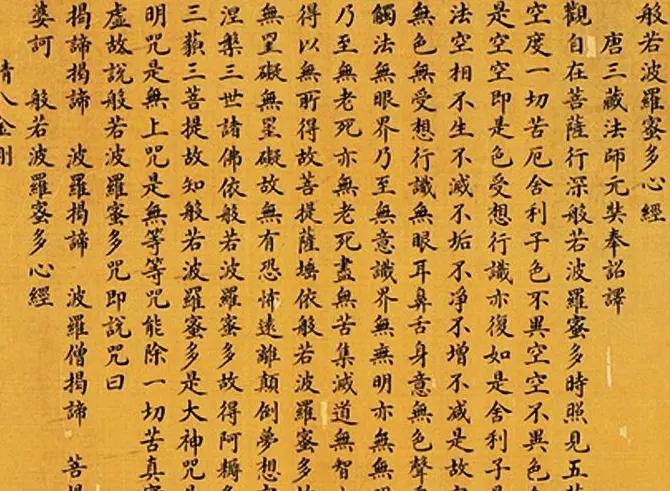 般若波羅蜜多心經
唐三藏法師元奘奉詔譯
觀自在菩薩行深般若波羅蜜多時照見五
空度一切苦厄舍利子色不異空空不異色
是空空即是色受想行識亦復如是舍利子
法空相不生不滅不垢不淨不增不減是故
無色無受想行識無眼耳鼻舌身意無色聲
觸法無眼界乃至無意識界無無明亦無無
乃至無老死亦無老死盡無苦集滅道無智
得以無所得故菩提薩埵依般若波羅蜜多故
無罣礙無罣礙故無有恐怖遠離顛倒夢想
涅槃三世諸佛依般若波羅蜜多故得阿耨多
三藐三菩提故知般若波羅蜜多是大神咒
明咒是無上咒是無等等咒能除一切苦真實
虛故說般若波羅蜜多咒即說咒曰
揭諦揭諦 波羅揭諦 波羅僧揭諦 菩提
婆訶 般若波羅蜜多心經
八金剛